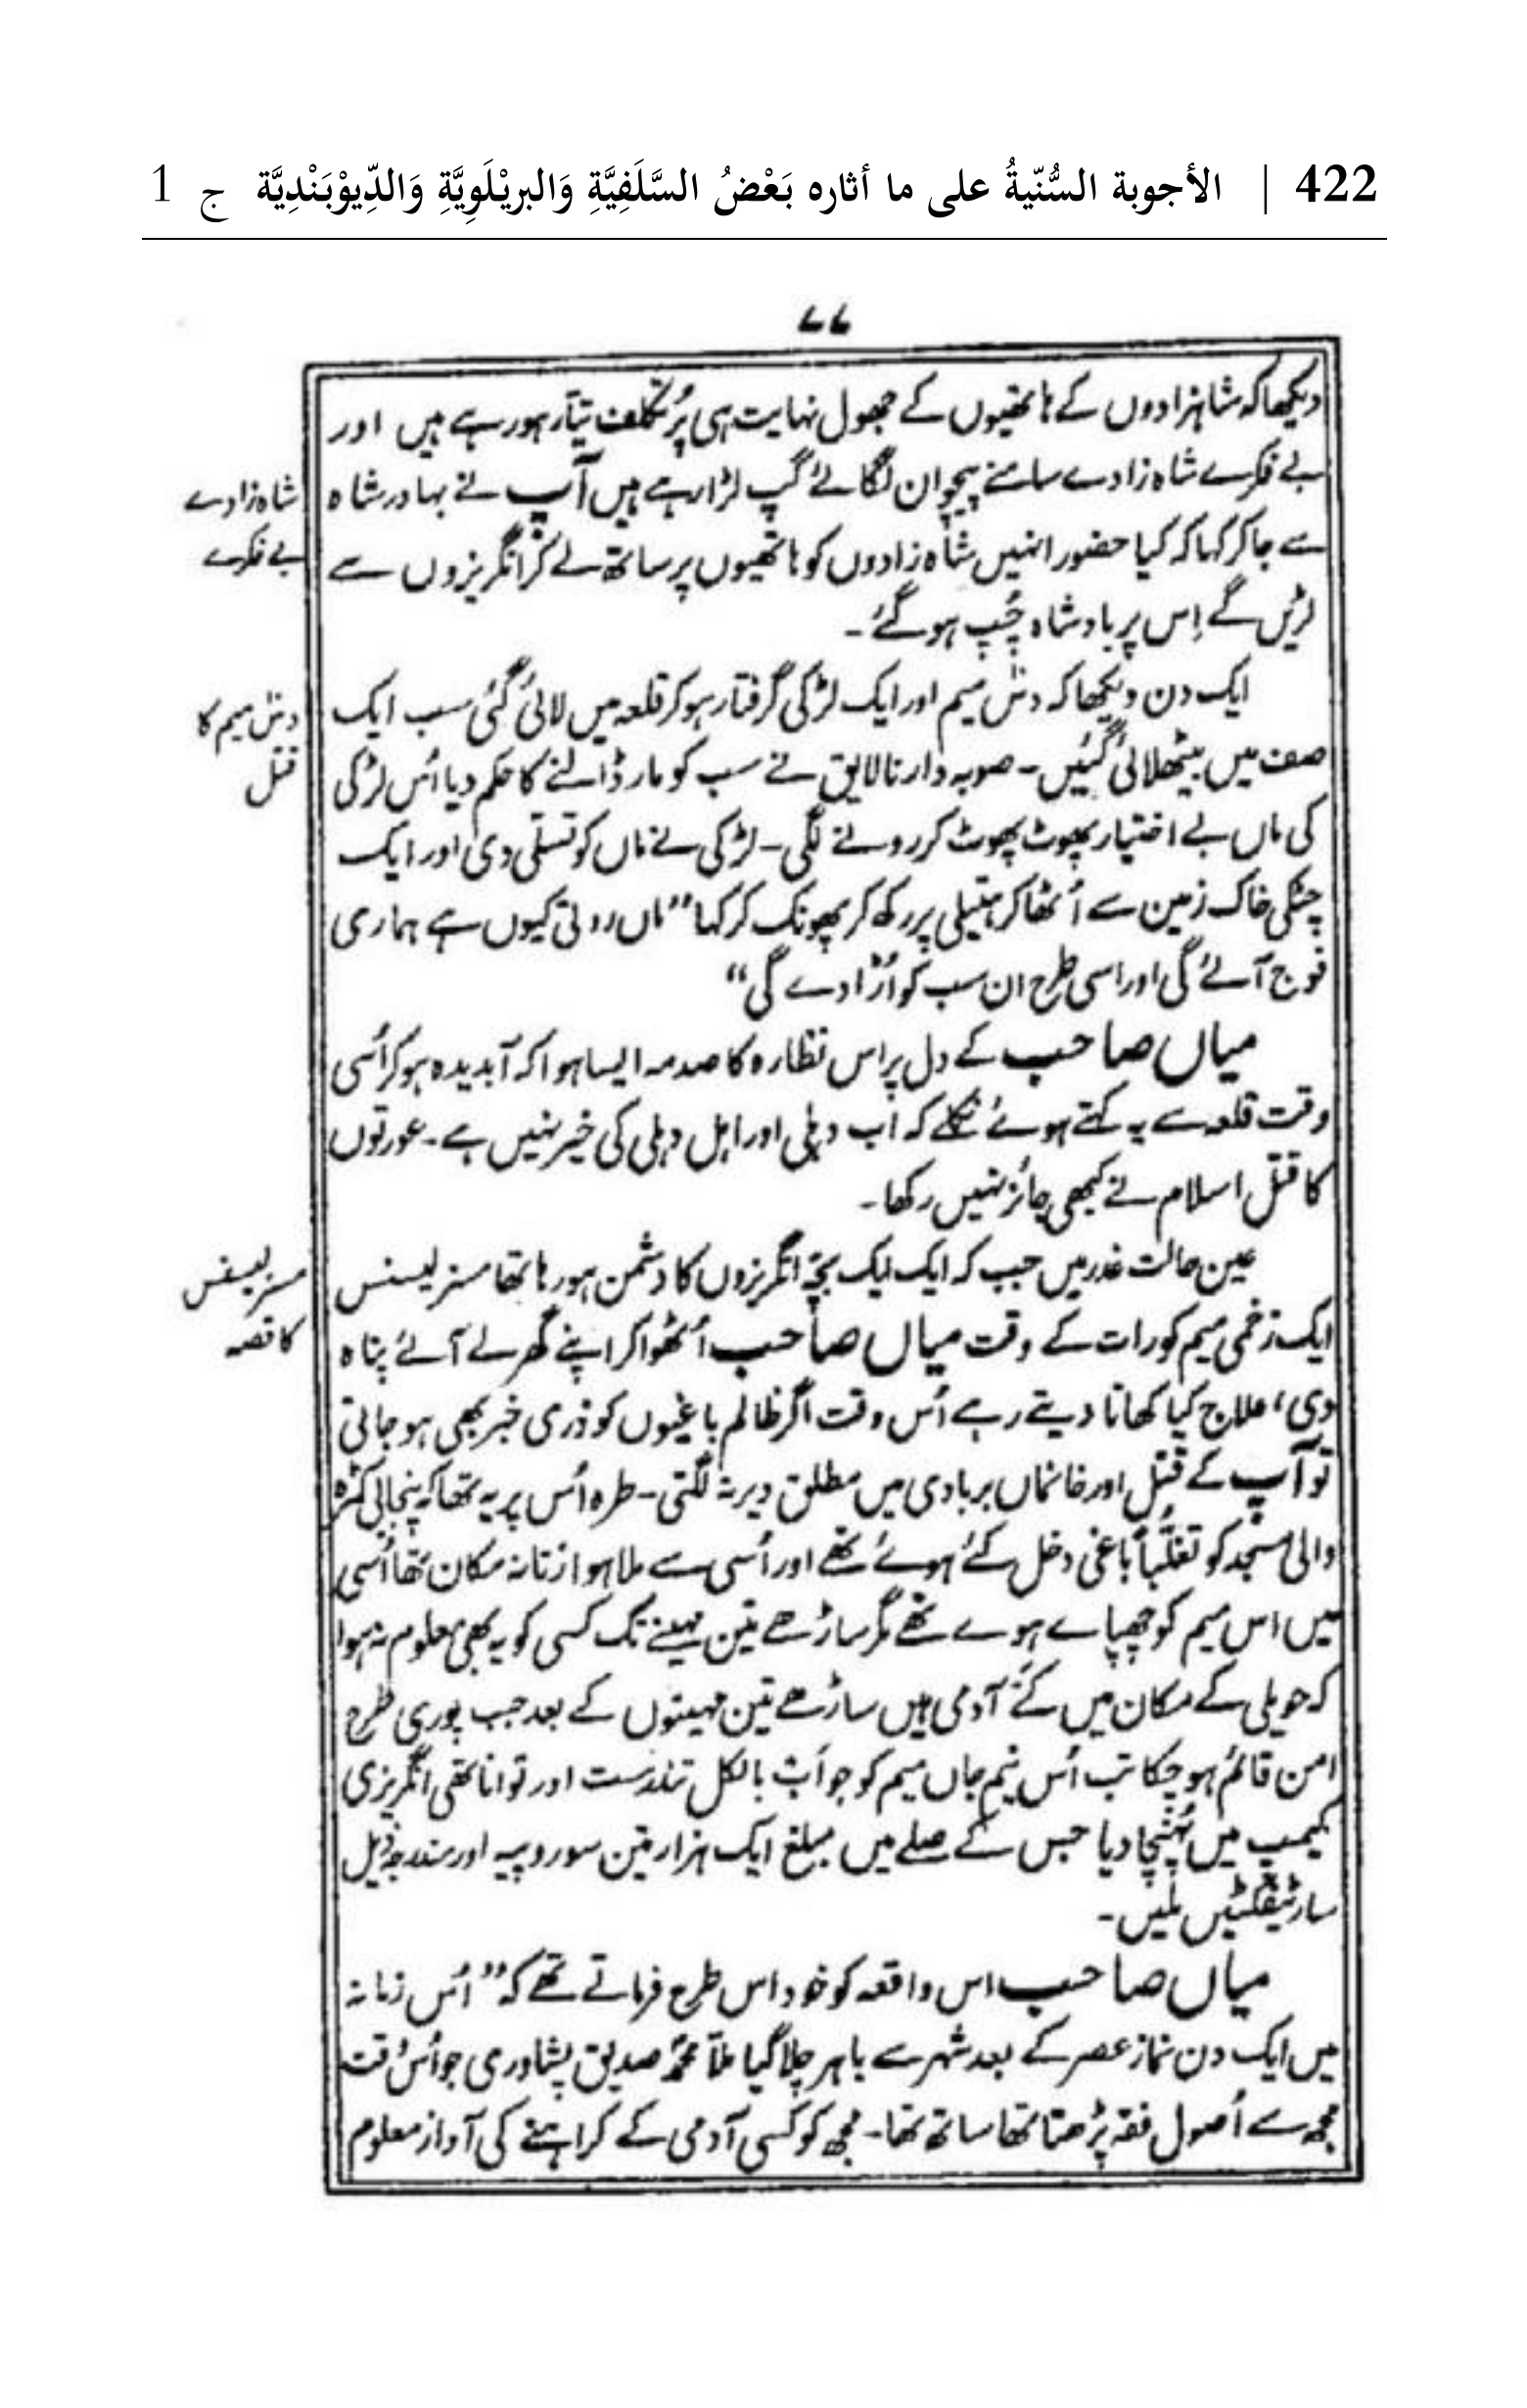 422 | الأجوبة السُّنّيةُ على ما أثاره بَعْضُ السَّلَفِيَّةِ وَالبريْلَوِيَّةِ وَالدِّيوْبَنْدِيَّة ج 1
۷۷
دیکھا کہ شاہزادوں کے ہاتھیوں کے جھول نہایت ہی پُر تکلف تیّار ہو رہے ہیں اور
بے فکرے شاہ زادے سامنے پیچوان لگائے گپ لڑا رہے ہیں آپ نے بہادر شاہ
شاہ زادے
سے جا کر کہا کہ کیا حضور انہیں شاہ زادوں کو ہاتھیوں پر ساتھ لے کر انگریزوں سے
بے فکرے
لڑیں گے اِس پر بادشاہ چُپ ہو گئے۔
ایک دن دیکھا کہ دس میم اور ایک لڑکی گرفتار ہو کر قلعہ میں لائی گئی سب ایک
دس میم کا
صف میں بیٹھلائی گئیں۔ صوبہ دار نالایق نے سب کو مار ڈالنے کا حکم دیا اُس لڑکی
قتل
کی ماں بے اختیار پھوٹ پھوٹ کر رونے لگی۔ لڑکی نے ماں کو تسلّی دی اور ایک
چٹکی خاک زمین سے اُٹھا کر ہتیلی پر رکھ کر پھونک کر کہا ”ماں روتی کیوں ہے ہماری
فوج آئے گی اور اسی طرح ان سب کو اُڑا دے گی“
میاں صاحب کے دل پر اس نظارہ کا صدمہ ایسا ہوا کہ آبدیدہ ہو کر اُسی
وقت قلعہ سے یہ کہتے ہوئے نکلے کہ اب دہلی اور اہل دہلی کی خیر نہیں ہے۔ عورتوں
کا قتل اسلام نے کبھی جائز نہیں رکھا۔
عین حالت غدر میں جب کہ ایک ایک بچّہ انگریزوں کا دشمن ہو رہا تھا مسز لیسنس
مسز لیسنس
ایک زخمی میم کو رات کے وقت میاں صاحب اُٹھوا کر اپنے گھر لے آئے پناہ
کا قصہ
دی، علاج کیا کھانا دیتے رہے اُس وقت اگر ظالم باغیوں کو ذری خبر بھی ہو جاتی
تو آپ کے قتل اور خانماں بربادی میں مطلق دیر نہ لگتی۔ طرہ اُس پر یہ تھا کہ پنجابی کٹرہ
والی مسجد کو تغلّباً باغی دخل کئے ہوئے تھے اور اُسی سے ملا ہوا زنانہ مکان تھا اُسی
میں اس میم کو چھپائے ہوے تھے مگر ساڑھے تین مہینے تک کسی کو یہ بھی معلوم نہ ہوا
کہ حویلی کے مکان میں کَے آدمی ہیں ساڑھے تین مہینوں کے بعد جب پوری طرح
امن قائم ہو چکا تب اُس نیم جاں میم کو جو اَب بالکل تندرست اور توانا تھی انگریزی
کیمپ میں پُہنچا دیا جس کے صلے میں مبلغ ایک ہزار تین سو روپیہ اور مندرجۂ ذیل
سارٹیفکٹیں ملیں۔
میاں صاحب اس واقعہ کو خود اس طرح فرماتے تھے کہ ”اُس زمانہ
میں ایک دن نماز عصر کے بعد شہر سے باہر چلا گیا ملّا محمّد صدیق پشاوری جو اُس وقت
مجھ سے اُصول فقہ پڑھتا تھا ساتھ تھا۔ مجھ کو کسی آدمی کے کراہنے کی آواز معلوم